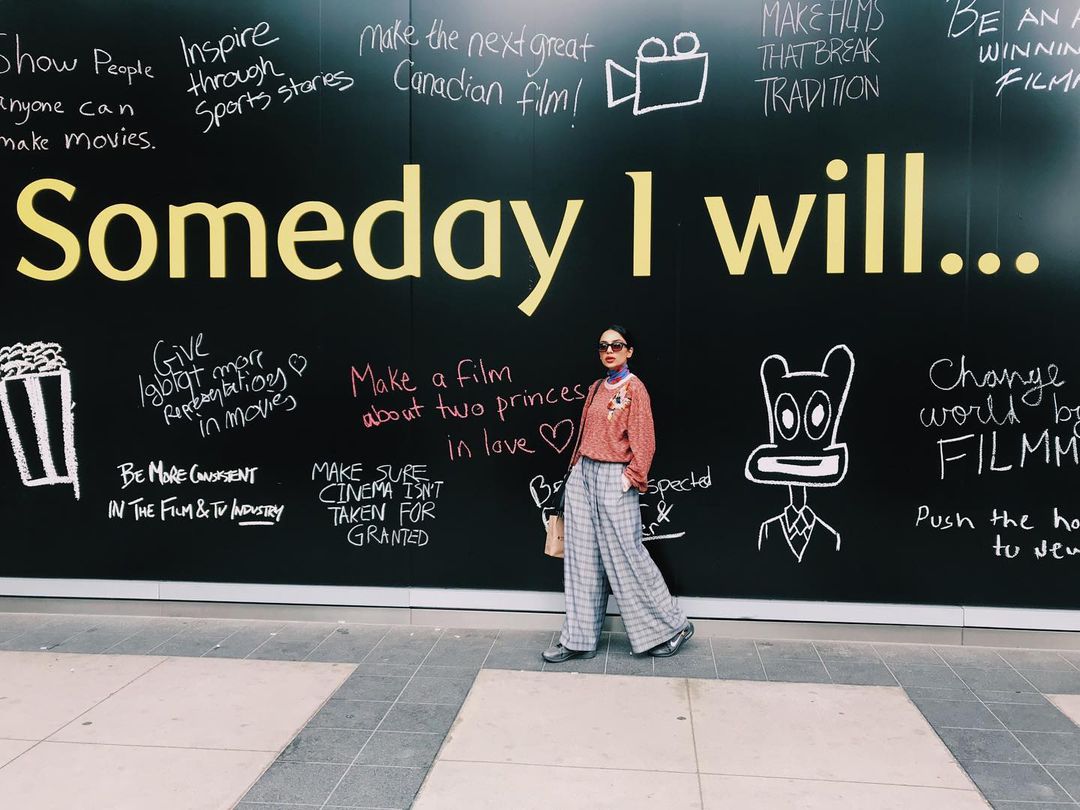 Show People
anyone can
make movies.
Inspire
through
Sports stories
Make the next great
Canadian film!
MAKE FILMS
THAT BREAK
TRADITION
BE AN A
WINNING
FILM
Someday I will...
Give
lgbtqt more
Representations
in movies
Make a film
about two princes
in love
Change
world b
FILMM
BE MORE CONSISTENT
IN THE FILM & TV INDUSTRY
MAKE SURE
CINEMA ISN'T
TAKEN FOR
GRANTED
spected
&
er
Push the
to